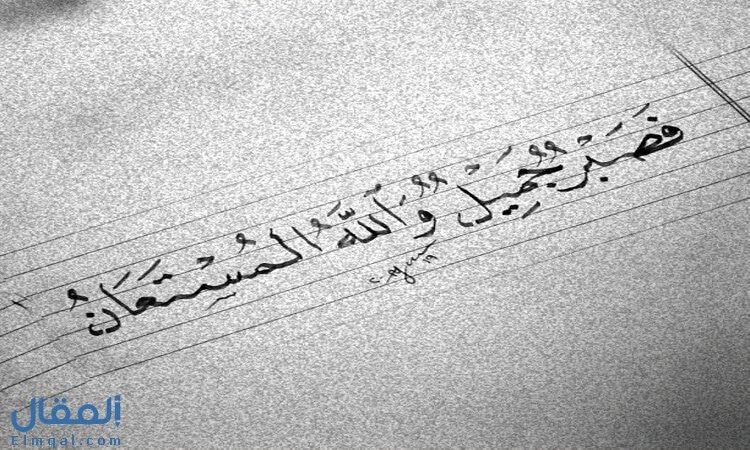 فَصَبْرٌ جَمِيلٌ وَاللَّهُ الْمُسْتَعَانُ
المقال
Elmqal.com